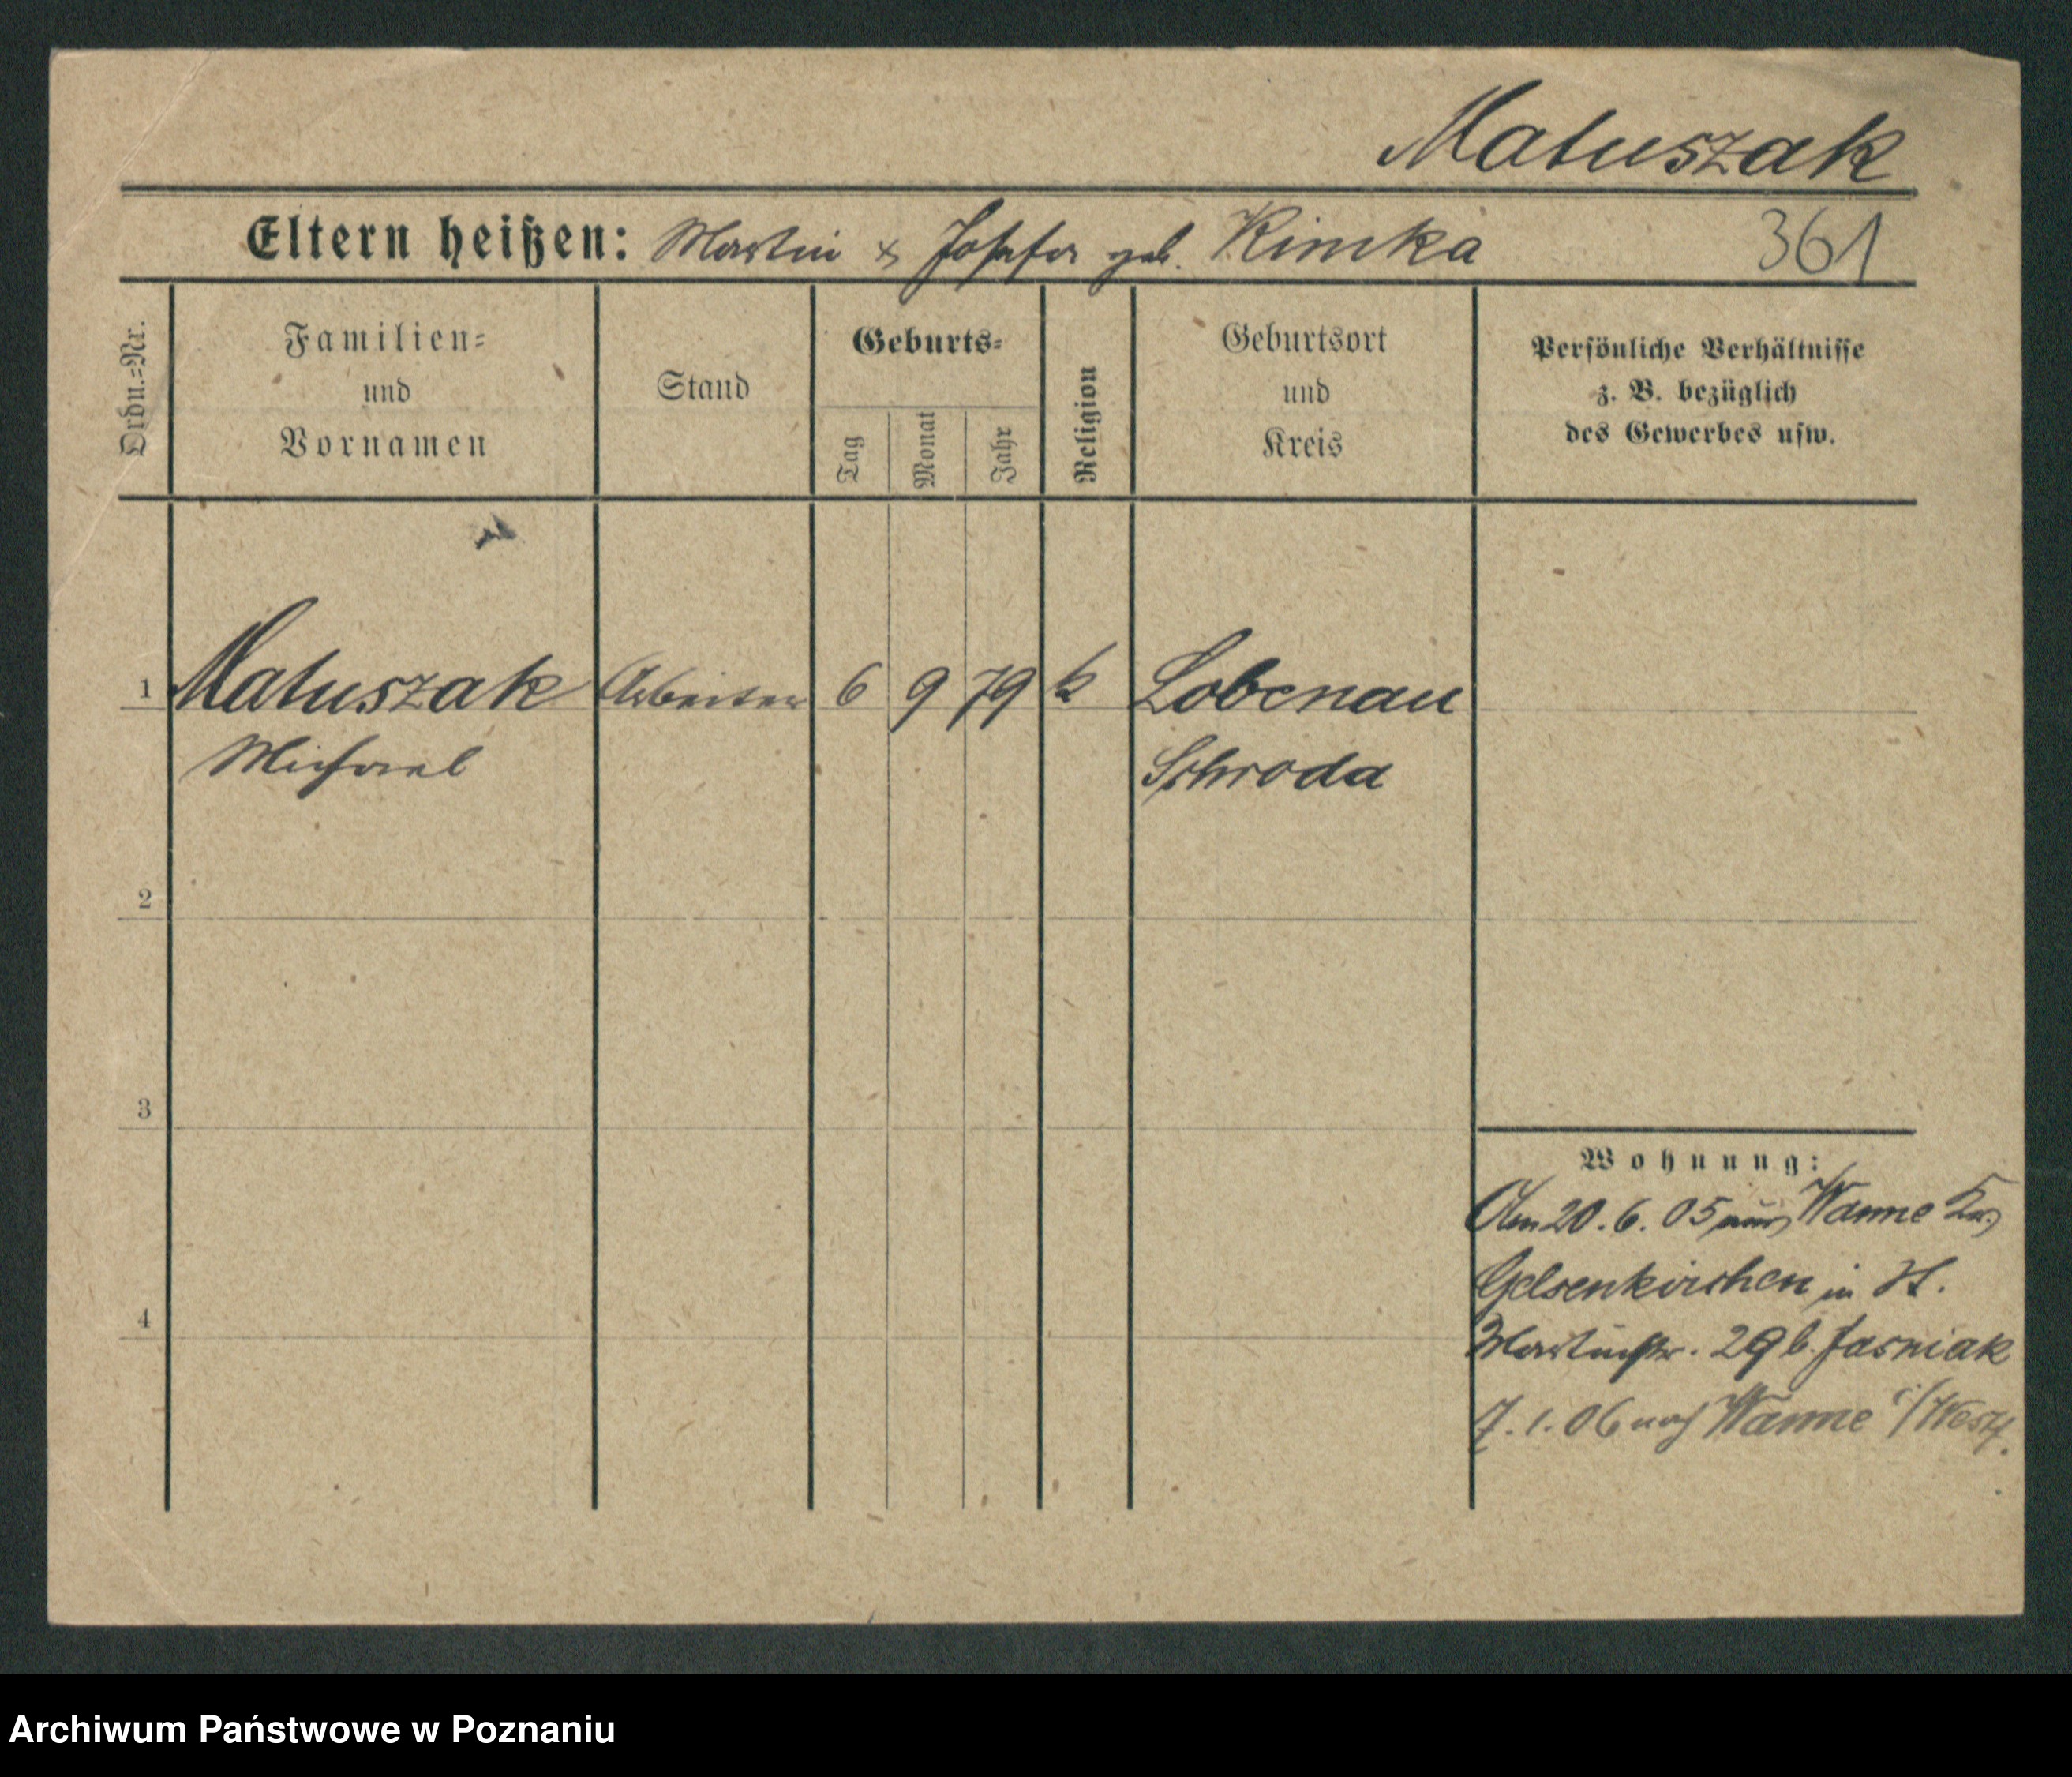 Matuszak
Eltern heißen: Martin & Josefa geb. Kimka 361
Ordn.=Nr.
Familien=
und
Vornamen
Stand
Geburts=
Tag
Monat
Jahr
Religion
Geburtsort
und
Kreis
Persönliche Verhältnisse
z. B. bezüglich
des Gewerbes usw.
1 Matuszak Arbeiter 6 9 79 k Lobenau
Michael Schroda
2
3
4
Wohnung:
Am 20. 6. 05 aus Wanne Krs
Gelsenkirchen in
Martinstr. 29 b. Jasniak
7. 1. 06 nach Wanne i/Westf.
Archiwum Państwowe w Poznaniu